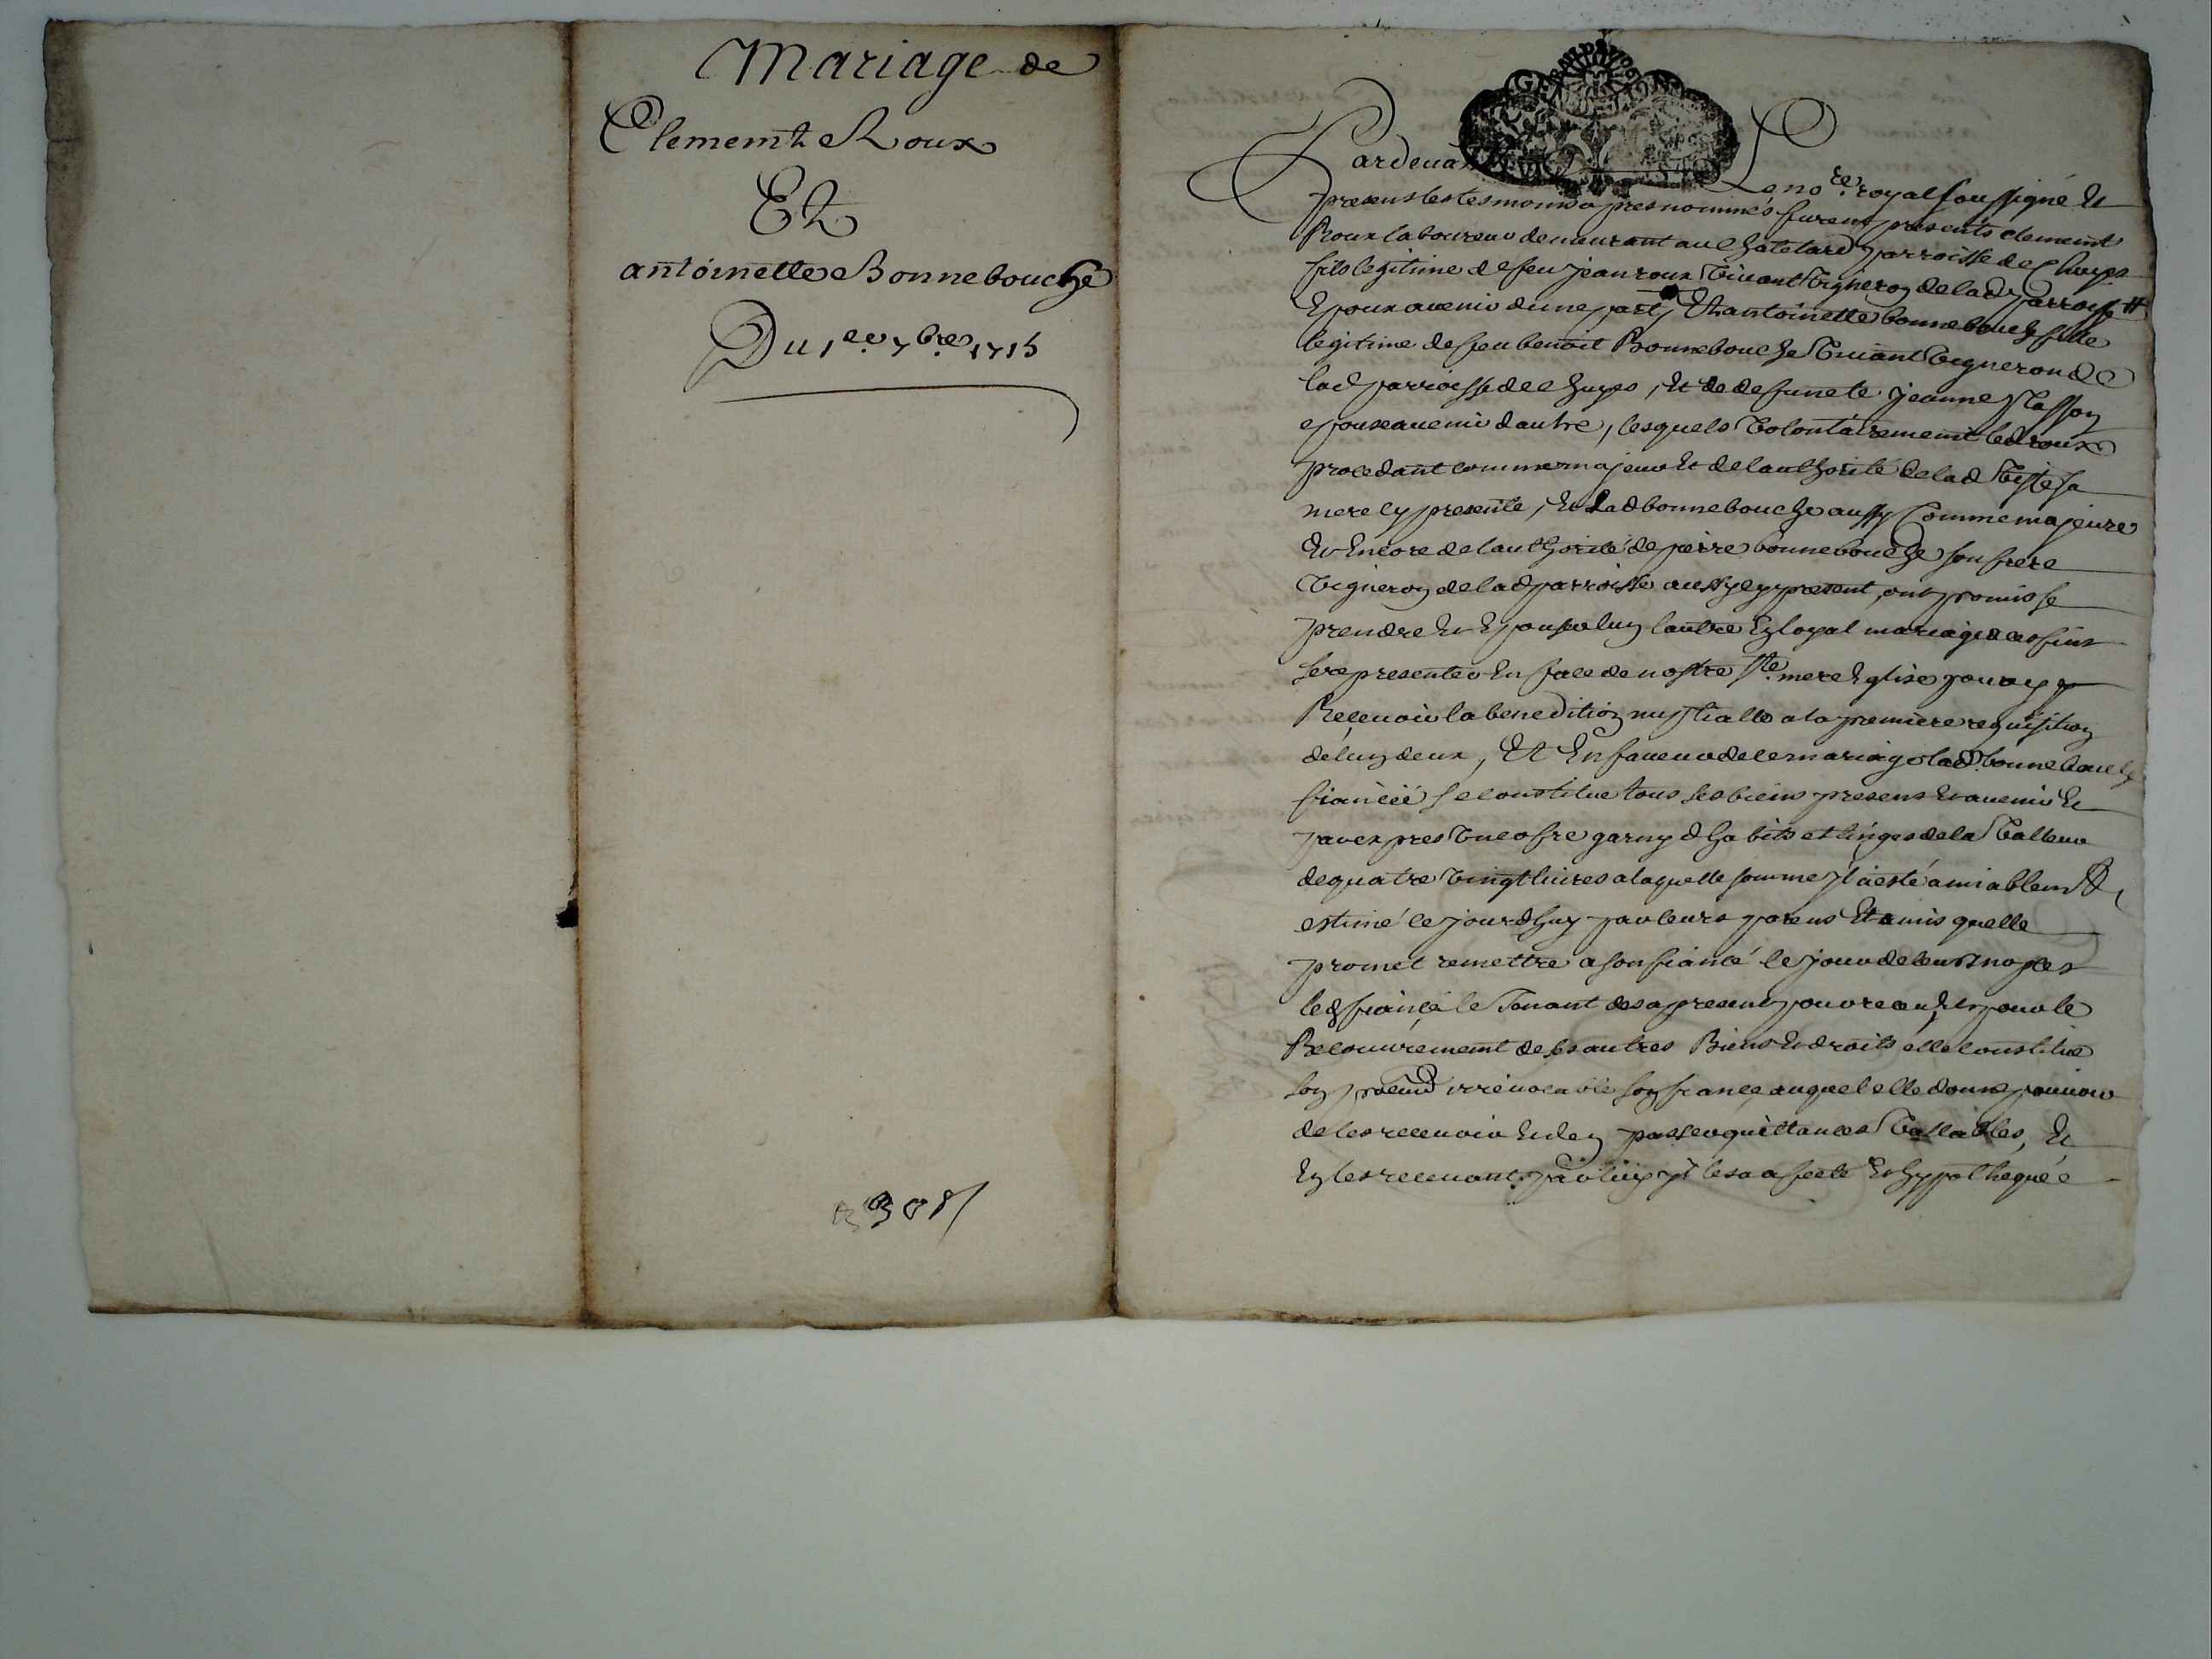 Mariage de
Clement Roux
Et
antoinette Bonnebouche
Du 1er 7bre 1715
GENERAL
Pardeuant Le nore. royal soussigné Et
presens les tesmoins apres nommés furent presents clement
Roux laboureur demeurant au Chatelard parroisse de
fils legitime de feu jean roux viuant vigneron de lad parroisse #
Epoux auenir dune part, Et antoinette bonnebouche fille
legitime de feu benoit Bonnebouche viuant vigneron de
lad parroisse de , Et de defuncte jeanne
espouse auenir dautre, lesquels volontairement led roux
procedant comme majeur Et de lauthorité de lad sa
mere cy presente, Et Lad bonnebouche aussy Comme majeure
Et Encore de lauthorité de pierre bonnebouche son frere
vigneron de lad parroisse aussy cy present, ont promis se
prendre Et Epouser lun lautre En loyal mariage a ces fins
se representer En face de nostre Ste. mere Eglise pour y
Receuoir la benedition nuptialle a la premiere requisition
de lun deux, Et En faueur de ce mariage lad. bonnebouche
fiancéé se constitue tous ses biens presens Et auenir Et
par expres vn cofre garny dhabits et linges de la valleur
de quatre vingt liures a laquelle somme jl a esté amiablemt
estimé ce jourdhuy par leurs parens Et amis quelle
promet remettre a son fiancé le jour de leurs nopces
led fiancé le Tenant des a present pour receu, Et pour le
Recouurement de ses autres Biens Et droits elle constitue
son irreuocable son fiance auquel elle donne pouuoir
de les receuoir Et den passer quittances vallables, Et
En les receuant par luy jl les a asfecté Et hyppothequée